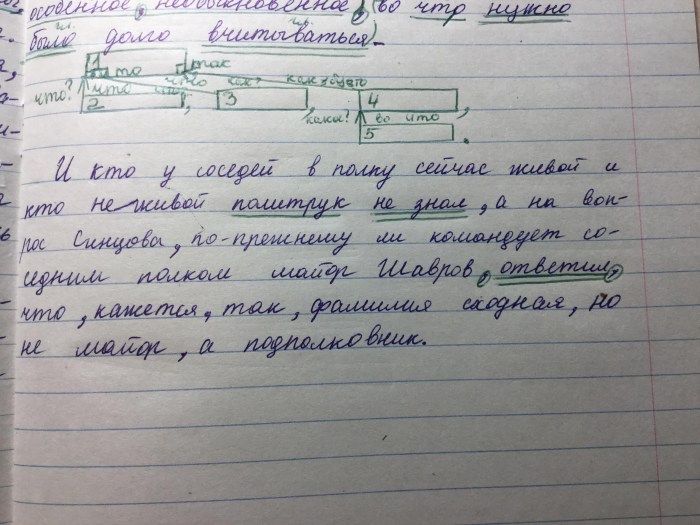 особенное, необыкновенное, (во что нужно
гл. гл.
было долго вчитываться).
1 то так
что? что что как? как будто
2, 3, 4,
какое? во что
5.
И кто у соседей в полку сейчас живой и
кто не живой политрук не знал, а на воп-
рос Синцова, по-прежнему ли командует со-
седним полком майор Шавров, ответил,
что, кажется, так, фамилия сходная, но
не майор, а подполковник.